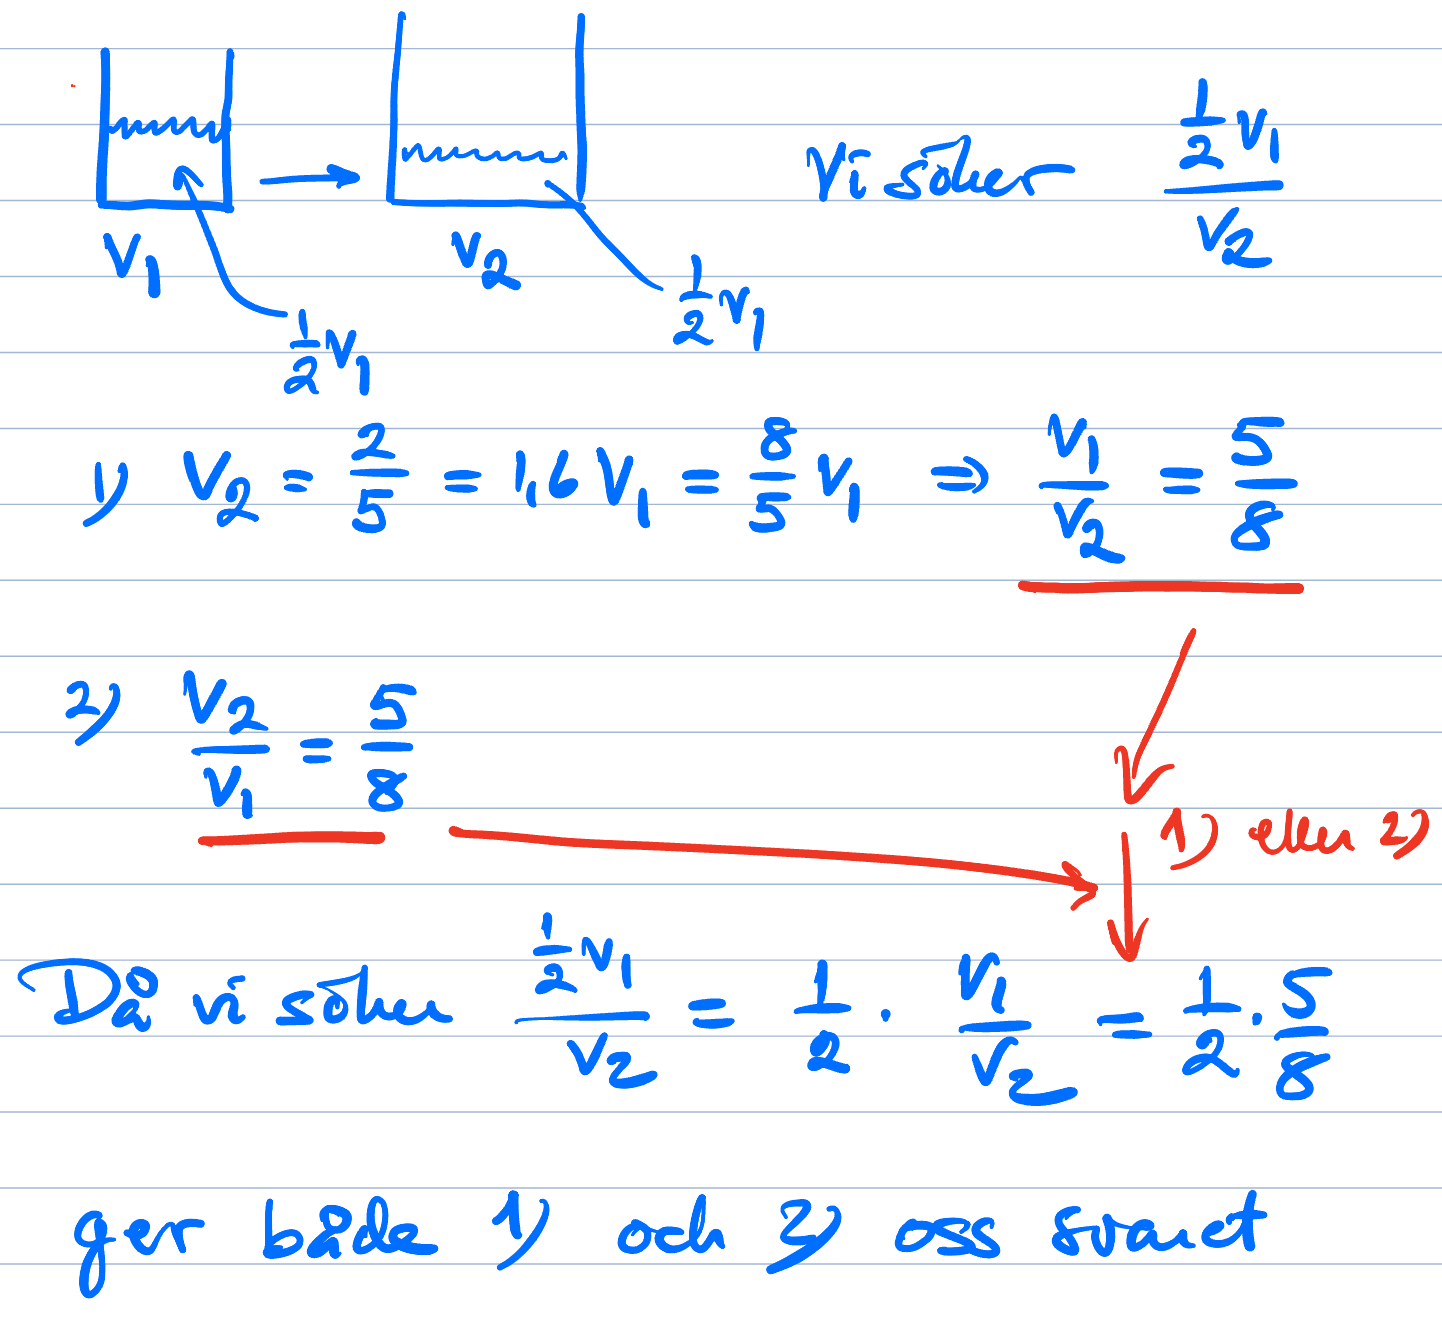 Vi söker (1/2 V₁)/V₂
V₁
V₂
1/2 V₁
1/2 V₁
1) V₂ = 2/5 = 1,6 V₁ = 8/5 V₁ ⇒ V₁/V₂ = 5/8
2) V₂/V₁ = 5/8
1) eller 2)
Då vi söker (1/2 V₁)/V₂ = 1/2 · V₁/V₂ = 1/2 · 5/8
ger både 1) och 2) oss svaret